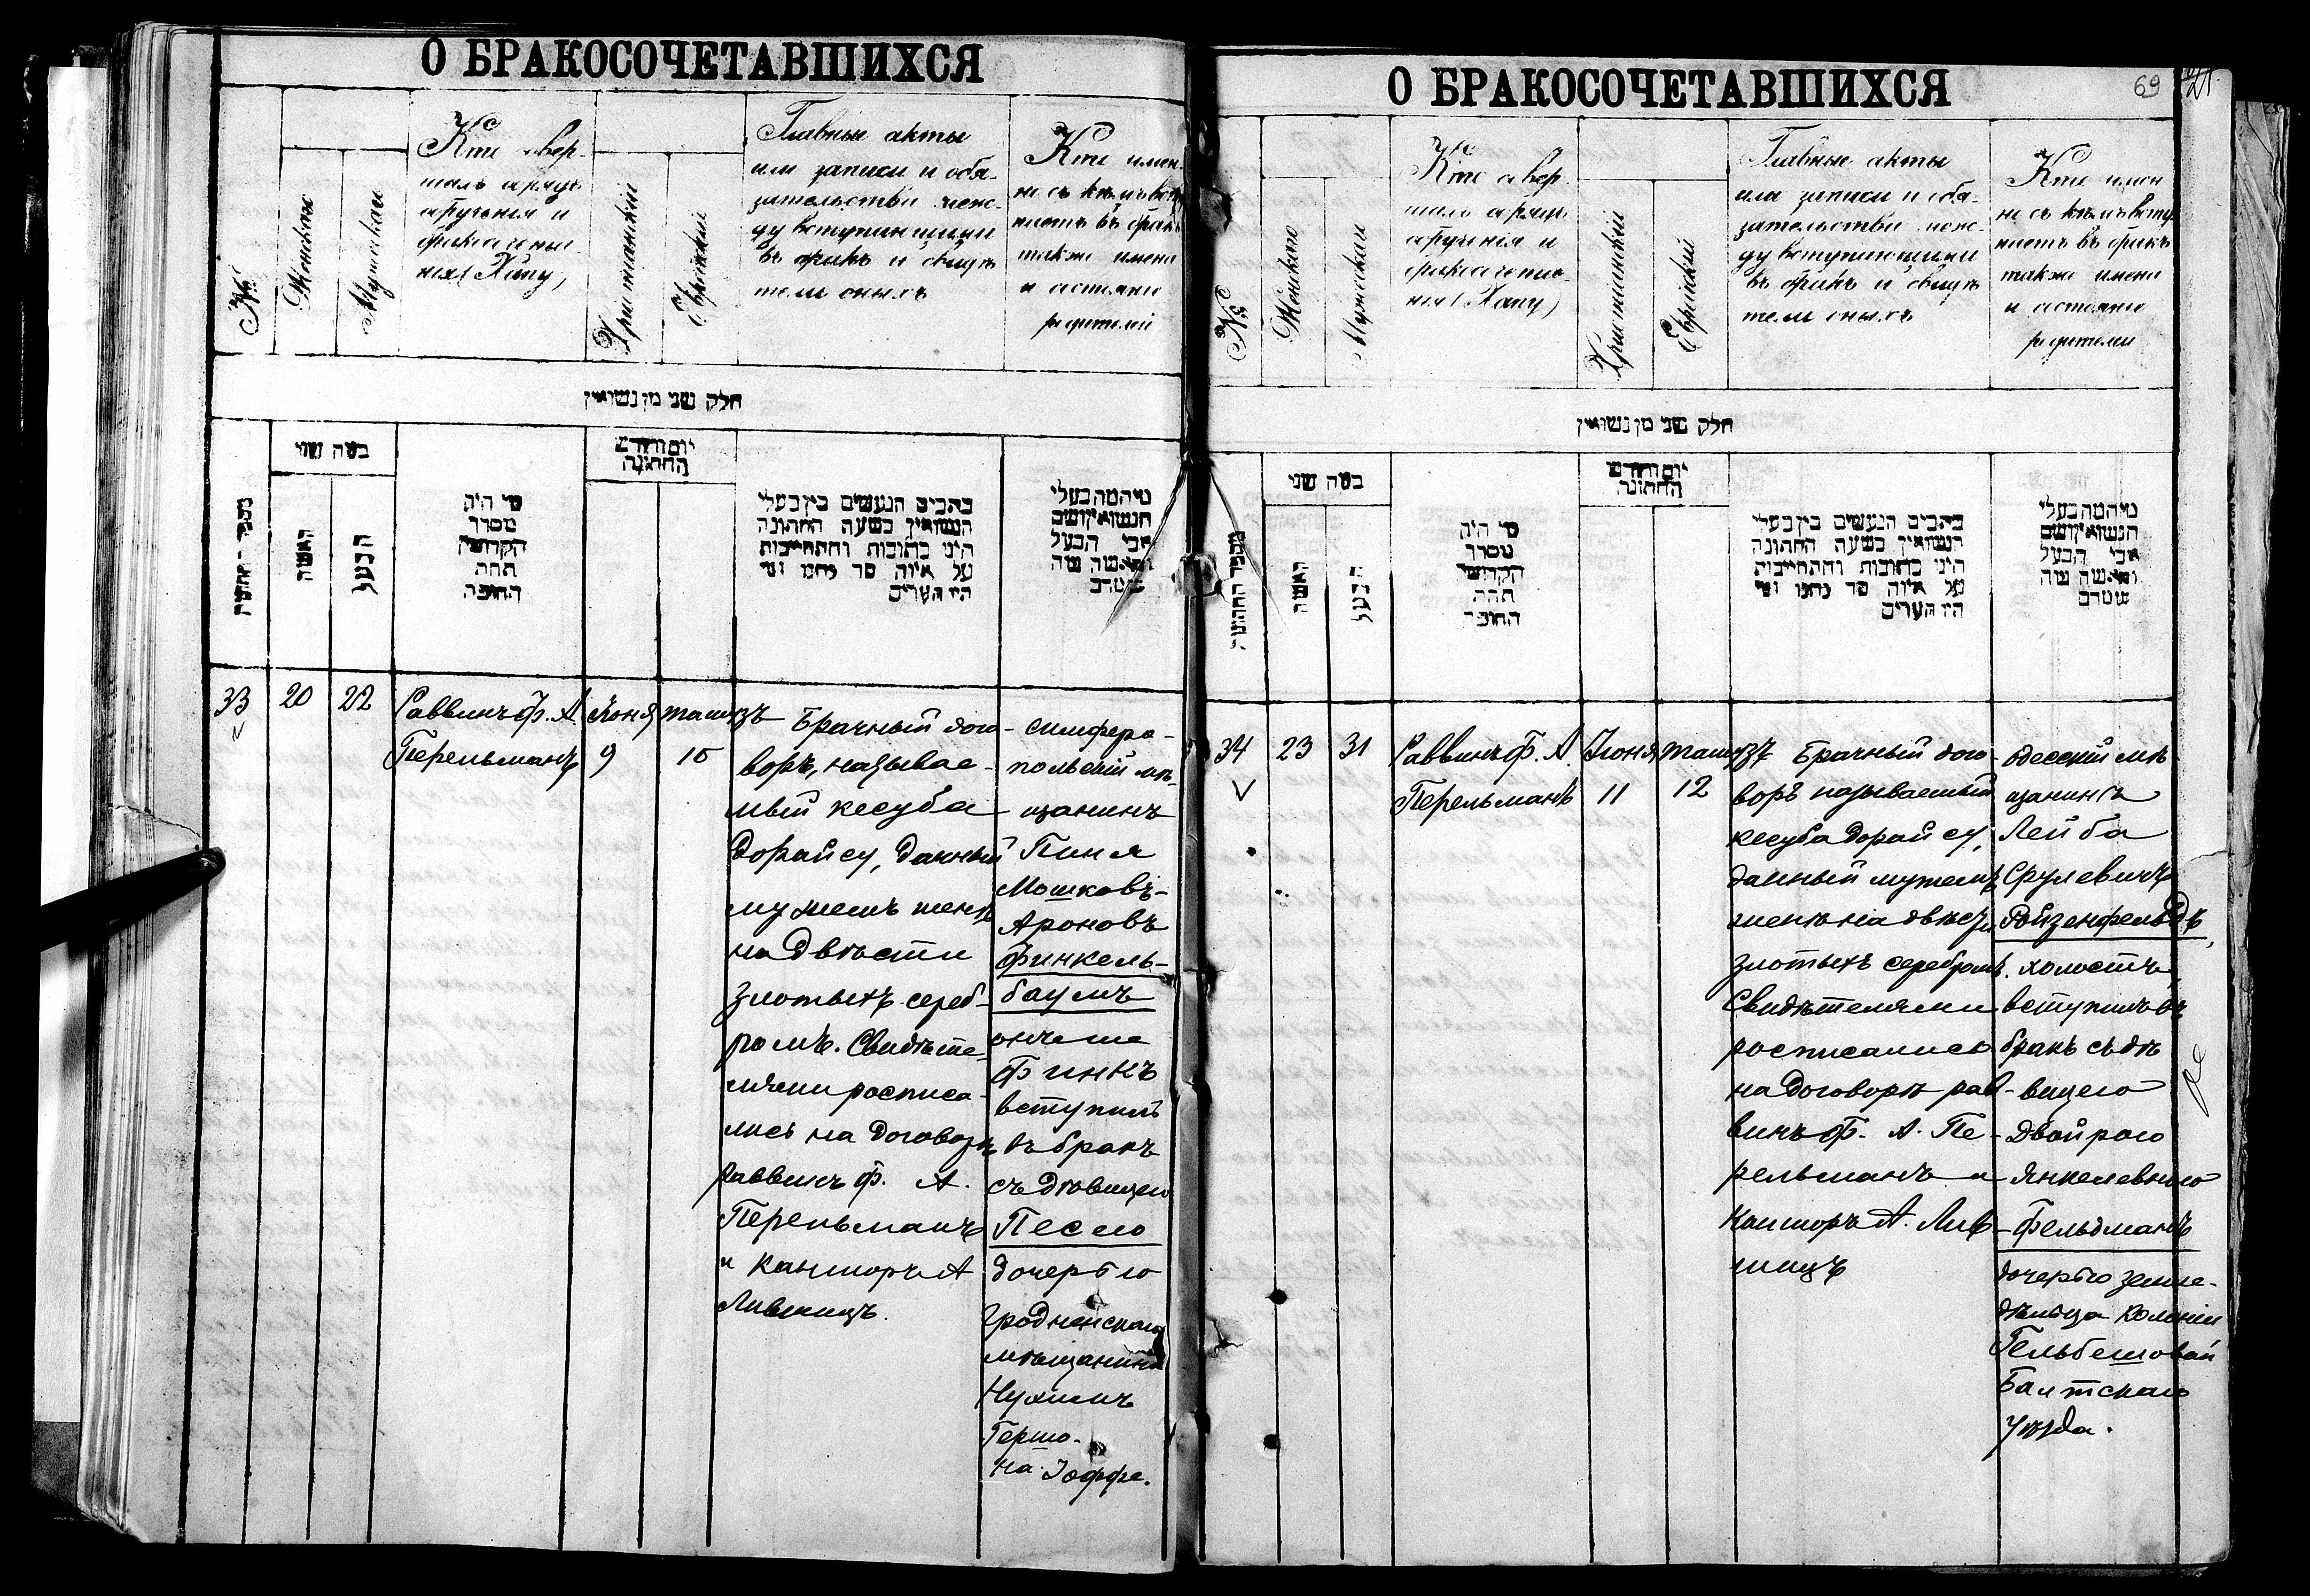 О БРАКОСОЧЕТАВШИХСЯ
№
Женскаго
Мужскаго
Кто совер-
шалъ обрядъ
обрученія и
бракосочета-
нія (Хупу)
Христіанскій
Еврейскій
Главные акты
или записи и обя-
зательства меж-
ду вступающими
въ бракъ и свидѣ-
тели оныхъ
Кто имен-
но съ кѣмъ всту-
паетъ въ бракъ
также имена
и состояніе
родителей
חלק שני מן נשואין
מספר החתונה
כמה שני
האשה
הבעל
מי היה
מסדר
הקדושין
תחת
החופה
יום וחדש
החתונה
כתבים הנעשים בין בעלי
הנשואין בשעה החתונה
היינו כתובות והתחייבות
על איזה סך נתנו ומי
היו העדים
33
20
22
Раввинъ Ф. А.
Перельманъ
Іюня
9
Тамузъ
10
Брачный дого-
воръ, называе-
мый кесуба
дорайсу, данный
мужемъ женѣ
на двѣсти
злотыхъ сереб-
ромъ. Свидѣте-
лями росписа-
лись на договорѣ
раввинъ Ф. А.
Перельманъ
и канторъ А
Лившицъ.
симферо-
польскій мѣ-
щанинъ
Пиня
Мошковъ-
Ароновъ
Финкель-
баумъ
онъ же
Финкъ
вступилъ
въ бракъ
съ дѣвицею
Песею
дочерью
гродненскаго
мѣщанина
Нухимъ
Гершо-
на Іоффе.
О БРАКОСОЧЕТАВШИХСЯ
69
№
Женскаго
Мужскаго
Кто совер-
шалъ обрядъ
обрученія и
бракосочета-
нія (Хупу)
Христіанскій
Еврейскій
Главные акты
или записи и обя-
зательства меж-
ду вступающими
въ бракъ и свидѣ-
тели оныхъ
Кто имен-
но съ кѣмъ всту-
паетъ въ бракъ
также имена
и состояніе
родителей
חלק שני מן נשואין
מספר החתונה
כמה שני
האשה
הבעל
מי היה
מסדר
הקדושין
תחת
החופה
יום וחדש
החתונה
כתבים הנעשים בין בעלי
הנשואין בשעה החתונה
היינו כתובות והתחייבות
על איזה סך נתנו ומי
היו העדים
34
23
31
Раввинъ Ф. А.
Перельманъ
Іюня
11
Тамузъ
12
Брачный дого-
воръ называемый
кесуба дорайсу,
данный мужемъ
женѣ на двѣсти
злотыхъ серебромъ.
Свидѣтелями
росписались
на договорѣ рав-
винъ Ф. А. Пе-
рельманъ и
канторъ А. Лив-
шицъ
одесскій мѣ-
щанинъ
Лейба
Срулевичъ
Ройзенфельдъ,
холостъ,
вступилъ въ
бракъ съ дѣ-
вицею
Двойрою
Янкелевною
Фельдманъ
дочерью земле-
дѣльца колоніи
Гельбешовай
Балтскаго
уѣзда.